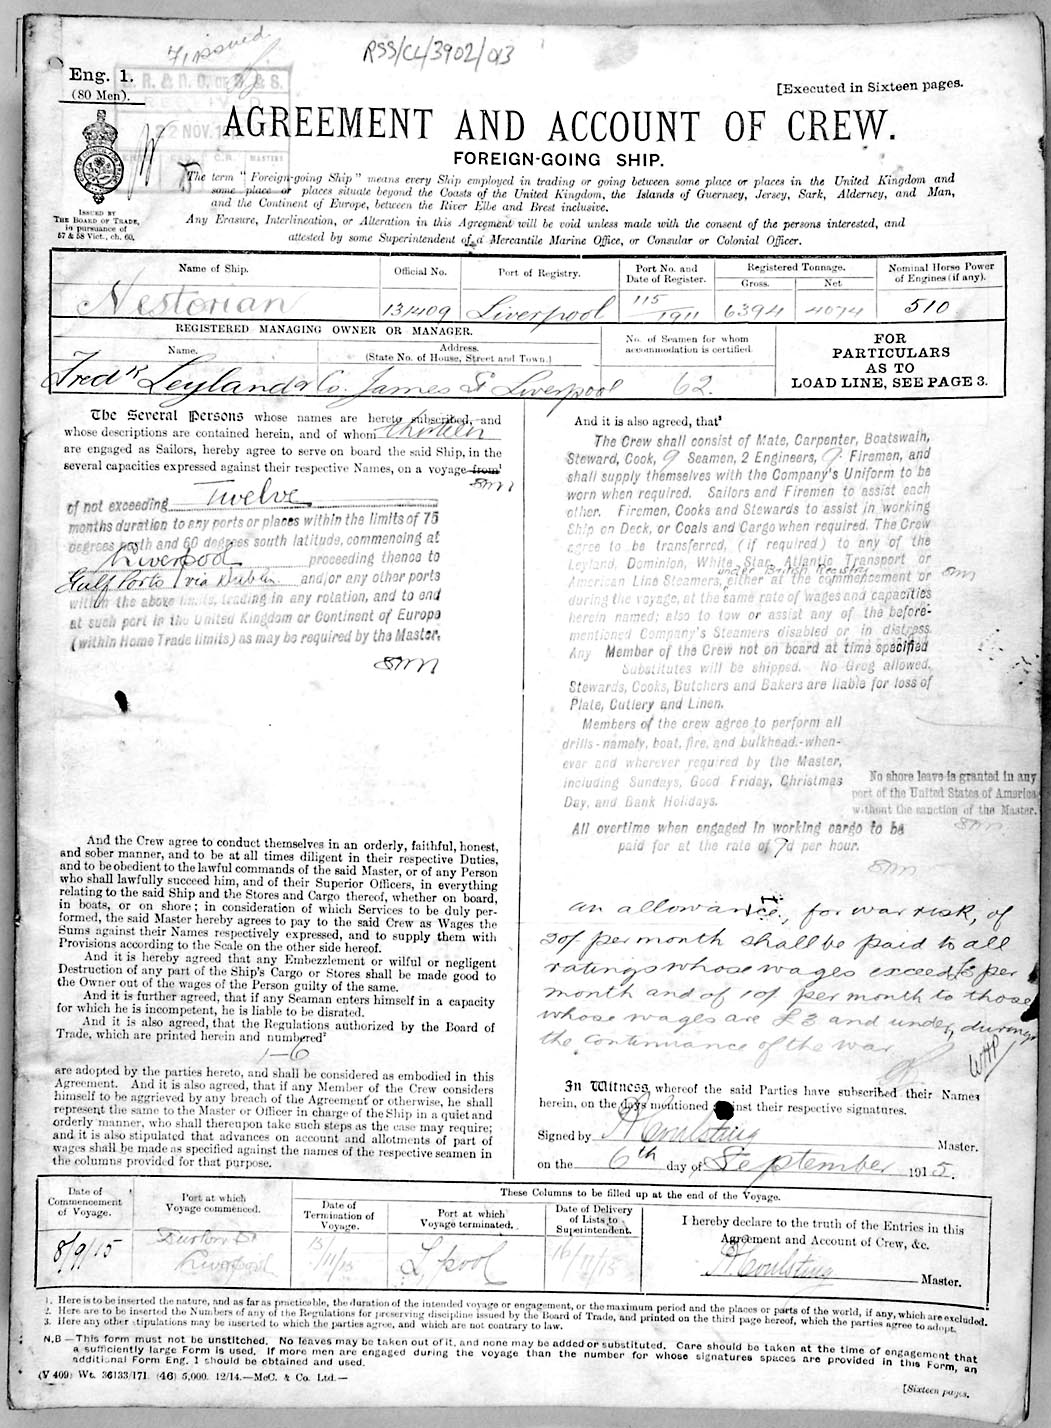 RSS/CL/3902/013
Eng. 1.
(80 Men).
[Executed in Sixteen pages.
22 NOV. 1
AGREEMENT AND ACCOUNT OF CREW.
FOREIGN-GOING SHIP.
ISSUED BY
THE BOARD OF TRADE,
in pursuance of
57 & 58 Vict., ch. 60.
The term "Foreign-going Ship" means every Ship employed in trading or going between some place or places in the United Kingdom and
some place or places situate beyond the Coasts of the United Kingdom, the Islands of Guernsey, Jersey, Sark, Alderney, and Man,
and the Continent of Europe, between the River Elbe and Brest inclusive.
Any Erasure, Interlineation, or Alteration in this Agreement will be void unless made with the consent of the persons interested, and
attested by some Superintendent of a Mercantile Marine Office, or Consular or Colonial Officer.
Name of Ship. Official No. Port of Registry. Port No. and Date of Register. Registered Tonnage. Gross. Net Nominal Horse Power of Engines (if any).
Nestorian 131409 Liverpool 115/1911 6394 4074 510
REGISTERED MANAGING OWNER OR MANAGER.
Name. Address. (State No. of House, Street and Town.) No. of Seamen for whom accommodation is certified.
Fredk Leyland & Co. James St Liverpool 62.
FOR
PARTICULARS
AS TO
LOAD LINE, SEE PAGE 3.
The Several Persons whose names are hereto subscribed, and
whose descriptions are contained herein, and of whom thirteen
are engaged as Sailors, hereby agree to serve on board the said Ship, in the
several capacities expressed against their respective Names, on a voyage from¹
of not exceeding Twelve
months duration to any ports or places within the limits of 75
degrees north and 60 degrees south latitude, commencing at
Liverpool proceeding thence to
Gulf Ports via Dublin and/or any other ports
within the above limits, trading in any rotation, and to end
at such port in the United Kingdom or Continent of Europe
(within Home Trade limits) as may be required by the Master.
And the Crew agree to conduct themselves in an orderly, faithful, honest,
and sober manner, and to be at all times diligent in their respective Duties,
and to be obedient to the lawful commands of the said Master, or of any Person
who shall lawfully succeed him, and of their Superior Officers, in everything
relating to the said Ship and the Stores and Cargo thereof, whether on board,
in boats, or on shore; in consideration of which Services to be duly per-
formed, the said Master hereby agrees to pay to the said Crew as Wages the
Sums against their Names respectively expressed, and to supply them with
Provisions according to the Scale on the other side hereof.
And it is hereby agreed that any Embezzlement or wilful or negligent
Destruction of any part of the Ship's Cargo or Stores shall be made good to
the Owner out of the wages of the Person guilty of the same.
And it is further agreed, that if any Seaman enters himself in a capacity
for which he is incompetent, he is liable to be disrated.
And it is also agreed, that the Regulations authorized by the Board of
Trade, which are printed herein and numbered²
1-6
are adopted by the parties hereto, and shall be considered as embodied in this
Agreement. And it is also agreed, that if any Member of the Crew considers
himself to be aggrieved by any breach of the Agreement or otherwise, he shall
represent the same to the Master or Officer in charge of the Ship in a quiet and
orderly manner, who shall thereupon take such steps as the case may require;
and it is also stipulated that advances on account and allotments of part of
wages shall be made as specified against the names of the respective seamen in
the columns provided for that purpose.
And it is also agreed, that³
The Crew shall consist of Mate, Carpenter, Boatswain,
Steward, Cook, 9 Seamen, 2 Engineers, 9 Firemen, and
shall supply themselves with the Company's Uniform to be
worn when required. Sailors and Firemen to assist each
other. Firemen, Cooks and Stewards to assist in working
Ship on Deck, or Coals and Cargo when required. The Crew
agree to be transferred, (if required) to any of the
Leyland, Dominion, White Star, Atlantic Transport or
under British Registry
American Line Steamers, either at the commencement or
during the voyage, at the same rate of wages and capacities
herein named; also to tow or assist any of the before-
mentioned Company's Steamers disabled or in distress.
Any Member of the Crew not on board at time specified
Substitutes will be shipped. No Grog allowed.
Stewards, Cooks, Butchers and Bakers are liable for loss of
Plate, Cutlery and Linen.
Members of the crew agree to perform all
drills - namely, boat, fire, and bulkhead - when-
ever and wherever required by the Master,
including Sundays, Good Friday, Christmas
Day, and Bank Holidays.
No shore leave is granted in any
port of the United States of America
without the sanction of the Master.
All overtime when engaged in working cargo to be
paid for at the rate of 9d per hour.
an allowance, for war risk, of
20/ per month shall be paid to all
ratings whose wages exceed £3 per
month and of 10/ per month to those
whose wages are £3 and under, during
the continuance of the war
WHP
In Witness whereof the said Parties have subscribed their Names
herein, on the days mentioned against their respective signatures.
Signed by Master.
on the 6th day of September 1915.
These Columns to be filled up at the end of the Voyage.
Date of Commencement of Voyage. Port at which Voyage commenced. Date of Termination of Voyage. Port at which Voyage terminated. Date of Delivery of Lists to Superintendent.
8/9/15 Liverpool 13/11/15 L'pool 16/11/15
I hereby declare to the truth of the Entries in this
Agreement and Account of Crew, &c.
Master.
1. Here is to be inserted the nature, and as far as practicable, the duration of the intended voyage or engagement, or the maximum period and the places or parts of the world, if any, which are excluded.
2. Here are to be inserted the Numbers of any of the Regulations for preserving discipline issued by the Board of Trade, and printed on the third page hereof, which the parties agree to adopt.
3. Here any other stipulations may be inserted to which the parties agree, and which are not contrary to law.
N.B—This form must not be unstitched. No leaves may be taken out of it, and none may be added or substituted. Care should be taken at the time of engagement that
a sufficiently large Form is used. If more men are engaged during the voyage than the number for whose signatures spaces are provided in this Form, an
additional Form Eng. 1 should be obtained and used.
(V 409) Wt. 36133/171. (46) 5,000. 12/14.—McC. & Co. Ltd.—
[Sixteen pages.